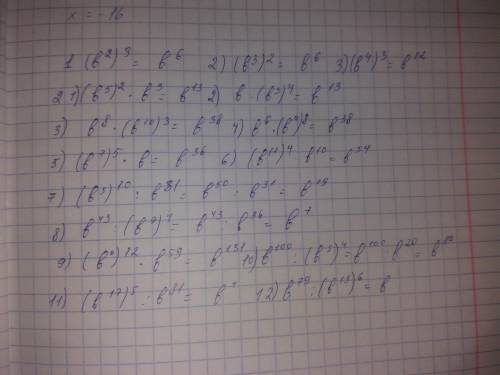 x = -16
1 (b²)³ = b⁶ 2) (b³)² = b⁶ 3) (b⁴)³ = b¹²
2 1) (b⁵)² · b³ = b¹³ 2) b · (b³)⁴ = b¹³
3) b⁸ · (b¹⁰)³ = b³⁸ 4) b⁶ · (b⁴)⁸ = b³⁸
5) (b⁷)⁵ · b = b³⁶ 6) (b¹¹)⁴ · b¹⁰ = b⁵⁴
7) (b⁵)¹⁰ : b³¹ = b⁵⁰ : b³¹ = b¹⁹
8) b⁴³ : (b⁹)⁴ = b⁴³ : b³⁶ = b⁷
9) (b⁶)¹² · b⁵⁹ = b¹³¹ 10) b¹⁰⁰ : (b⁵)⁴ = b¹⁰⁰ b²⁰ = b⁸⁰
11) (b¹⁷)⁵ : b⁸¹ = b⁴ 12) b⁷⁹ : (b¹³)⁶ = b